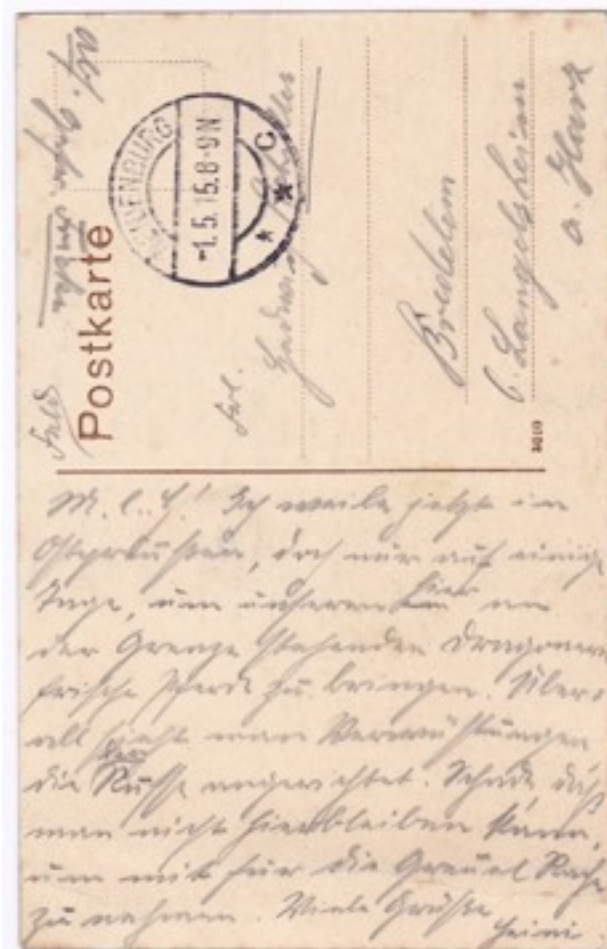 Feld
Postkarte
-1.5.15.8-9N
C
Frl.
Hedwig
Bredelem
b. Langelsheim
a. Harz
M. l. H.! Ich weile jetzt in
Ostpreußen, doch nur auf einige
Tage, um unseren hier an
der Grenze stehenden Dragonern
frische Pferde zu bringen. Über-
all sieht man Verwüstungen
die der Russe angerichtet. Schade, daß
man nicht hierbleiben kann,
um mit für die Greuel Rache
zu nehmen. Viele Grüße
Heini.